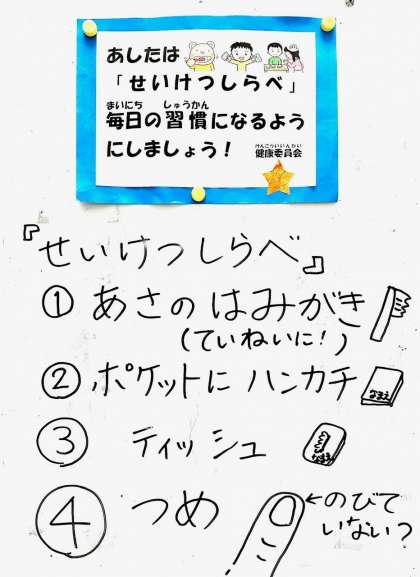 あしたは
「せいけつしらべ」
まいにち しゅうかん
毎日の習慣になるよう
にしましょう！
けんこういいんかい
健康委員会
『せいけつしらべ』
① あさの はみがき
(ていねいに！)
② ポケットに ハンカチ
なまえ
③ ティッシュ
なまえ
④ つめ
←のびて
いない？